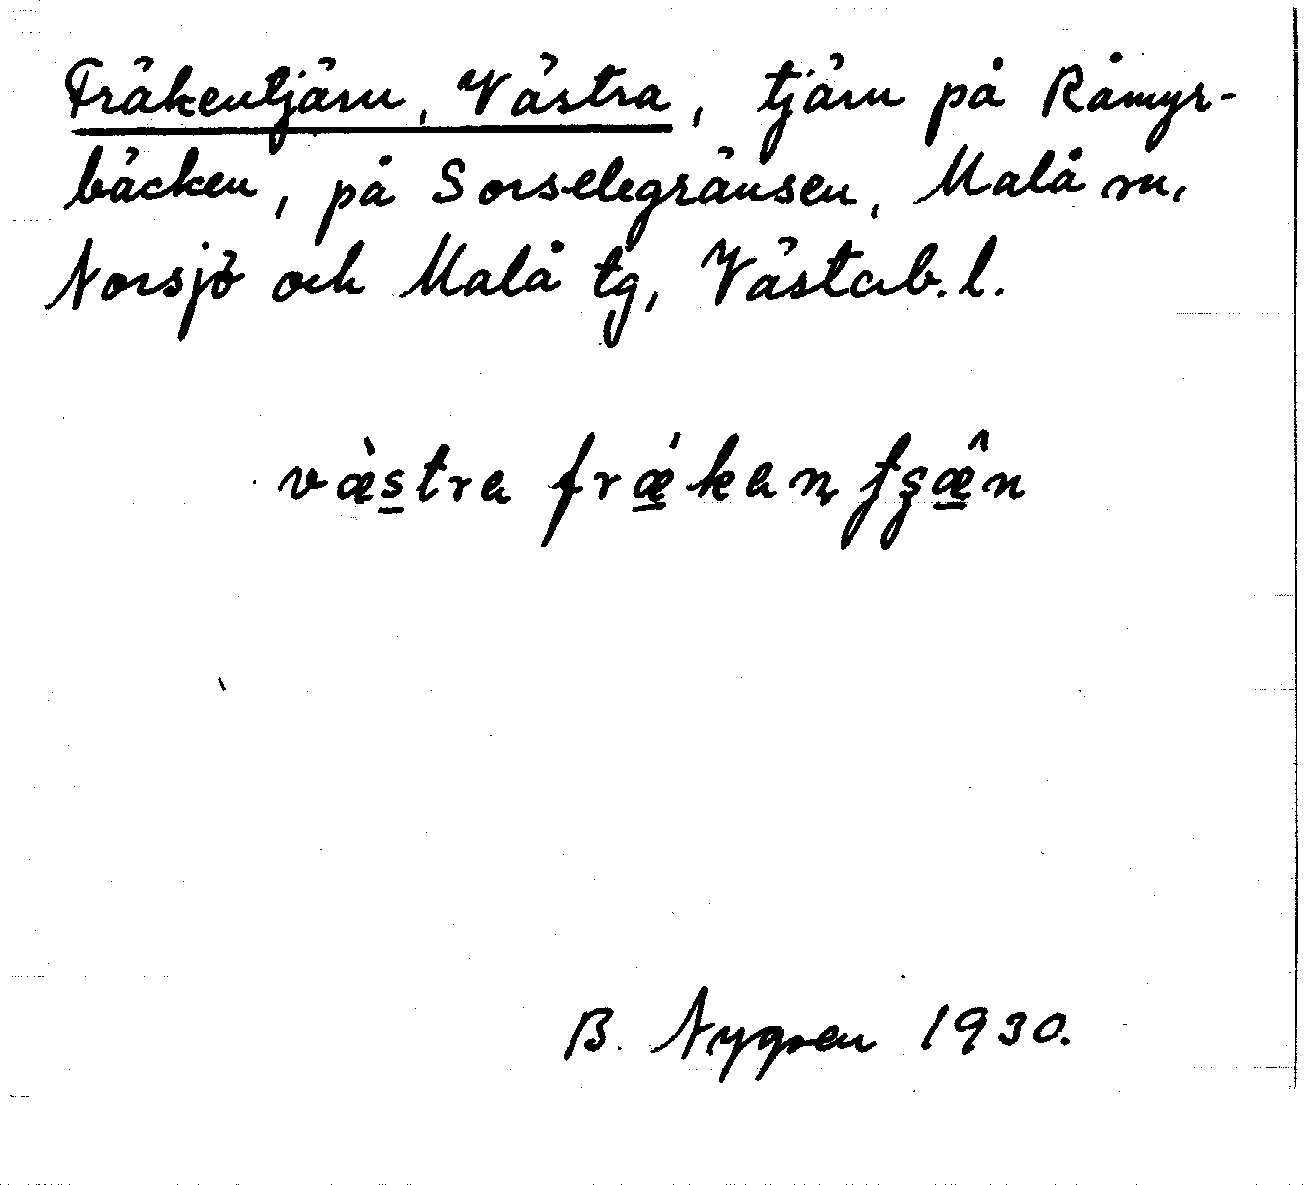 Fräkentjärn, Västra, tjärn på Råmyr-
bäcken, på Sorselegränsen, Malå sn,
Norsjö och Malå tg, Västerb. l.
væ̀stra frǽkan ʃʂæ̂n
B. Nygren 1930.